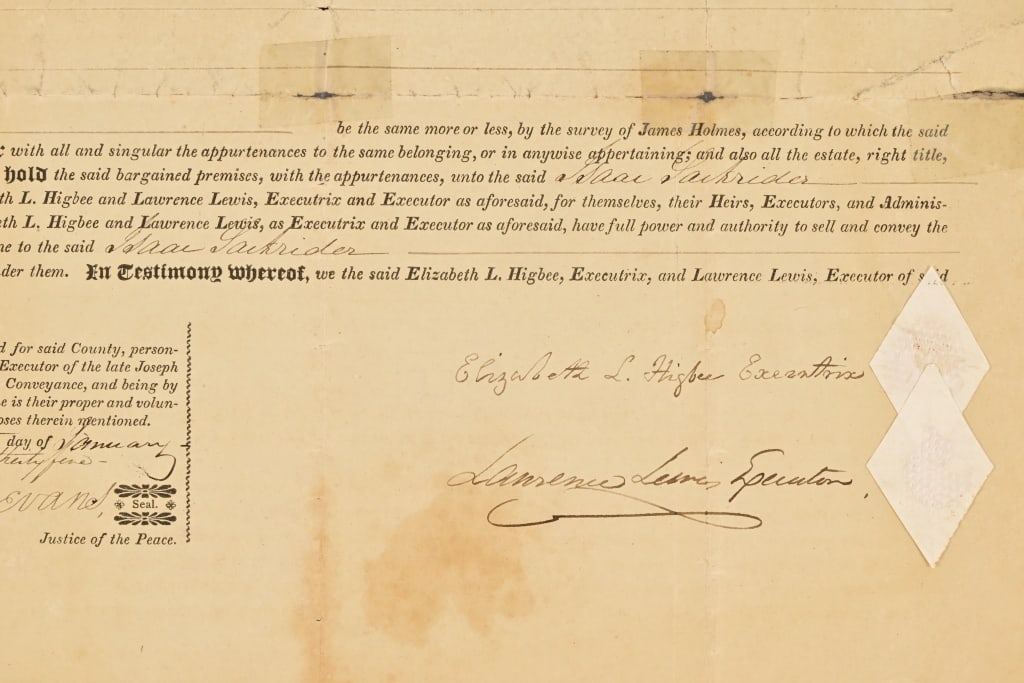 be the same more or less, by the survey of James Holmes, according to which the said
with all and singular the appurtenances to the same belonging, or in anywise appertaining; and also all the estate, right title,
hold the said bargained premises, with the appurtenances, unto the said Isaac Sackrider
th L. Higbee and Lawrence Lewis, Executrix and Executor as aforesaid, for themselves, their Heirs, Executors, and Adminis-
eth L. Higbee and Lawrence Lewis, as Executrix and Executor as aforesaid, have full power and authority to sell and convey the
e to the said Isaac Sackrider
der them. In Testimony whereof, we the said Elizabeth L. Higbee, Executrix, and Lawrence Lewis, Executor of said
d for said County, person-
Executor of the late Joseph
Conveyance, and being by
e is their proper and volun-
oses therein mentioned.
day of January
thirty five
Evans,
Seal.
Justice of the Peace.
Elizabeth L. Higbee Executrix
Lawrence Lewis Executor,